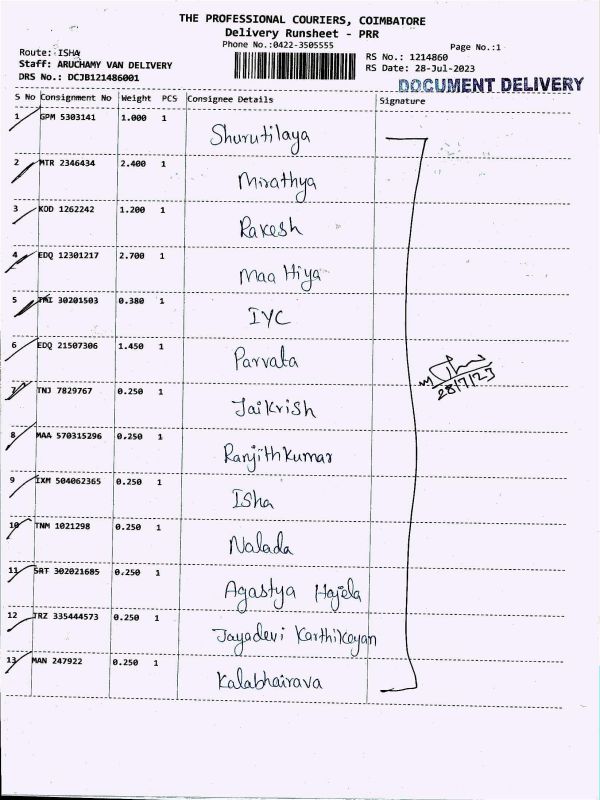 THE PROFESSIONAL COURIERS, COIMBATORE
Delivery Runsheet - PRR
Phone No.:0422-3505555
Page No.:1
Route: ISHA
RS No.: 1214860
Staff: ARUCHAMY VAN DELIVERY
RS Date: 28-Jul-2023
DRS No.: DCJB121486001
DOCUMENT DELIVERY
S No Consignment No Weight PCS Consignee Details Signature
1 GPM 5303141 1.000 1
Shurutilaya
2 MTR 2346434 2.400 1
Mirathya
3 KOD 1262242 1.200 1
Rakesh
4 EDQ 12301217 2.700 1
Maa Hiya
5 30201503 0.380 1
IYC
6 EDQ 21507306 1.450 1
Parvata
28/7/23
7 TNJ 7829767 0.250 1
Jaikrish
8 MAA 570315296 0.250 1
Ranjithkumar
9 IXM 504062365 0.250 1
Isha
10 TNM 1021298 0.250 1
Nalada
11 SRT 302021685 0.250 1
Agastya Hajela
12 TRZ 335444573 0.250 1
Jayadevi Karthikeyan
13 MAN 247922 0.250 1
Kalabhairava